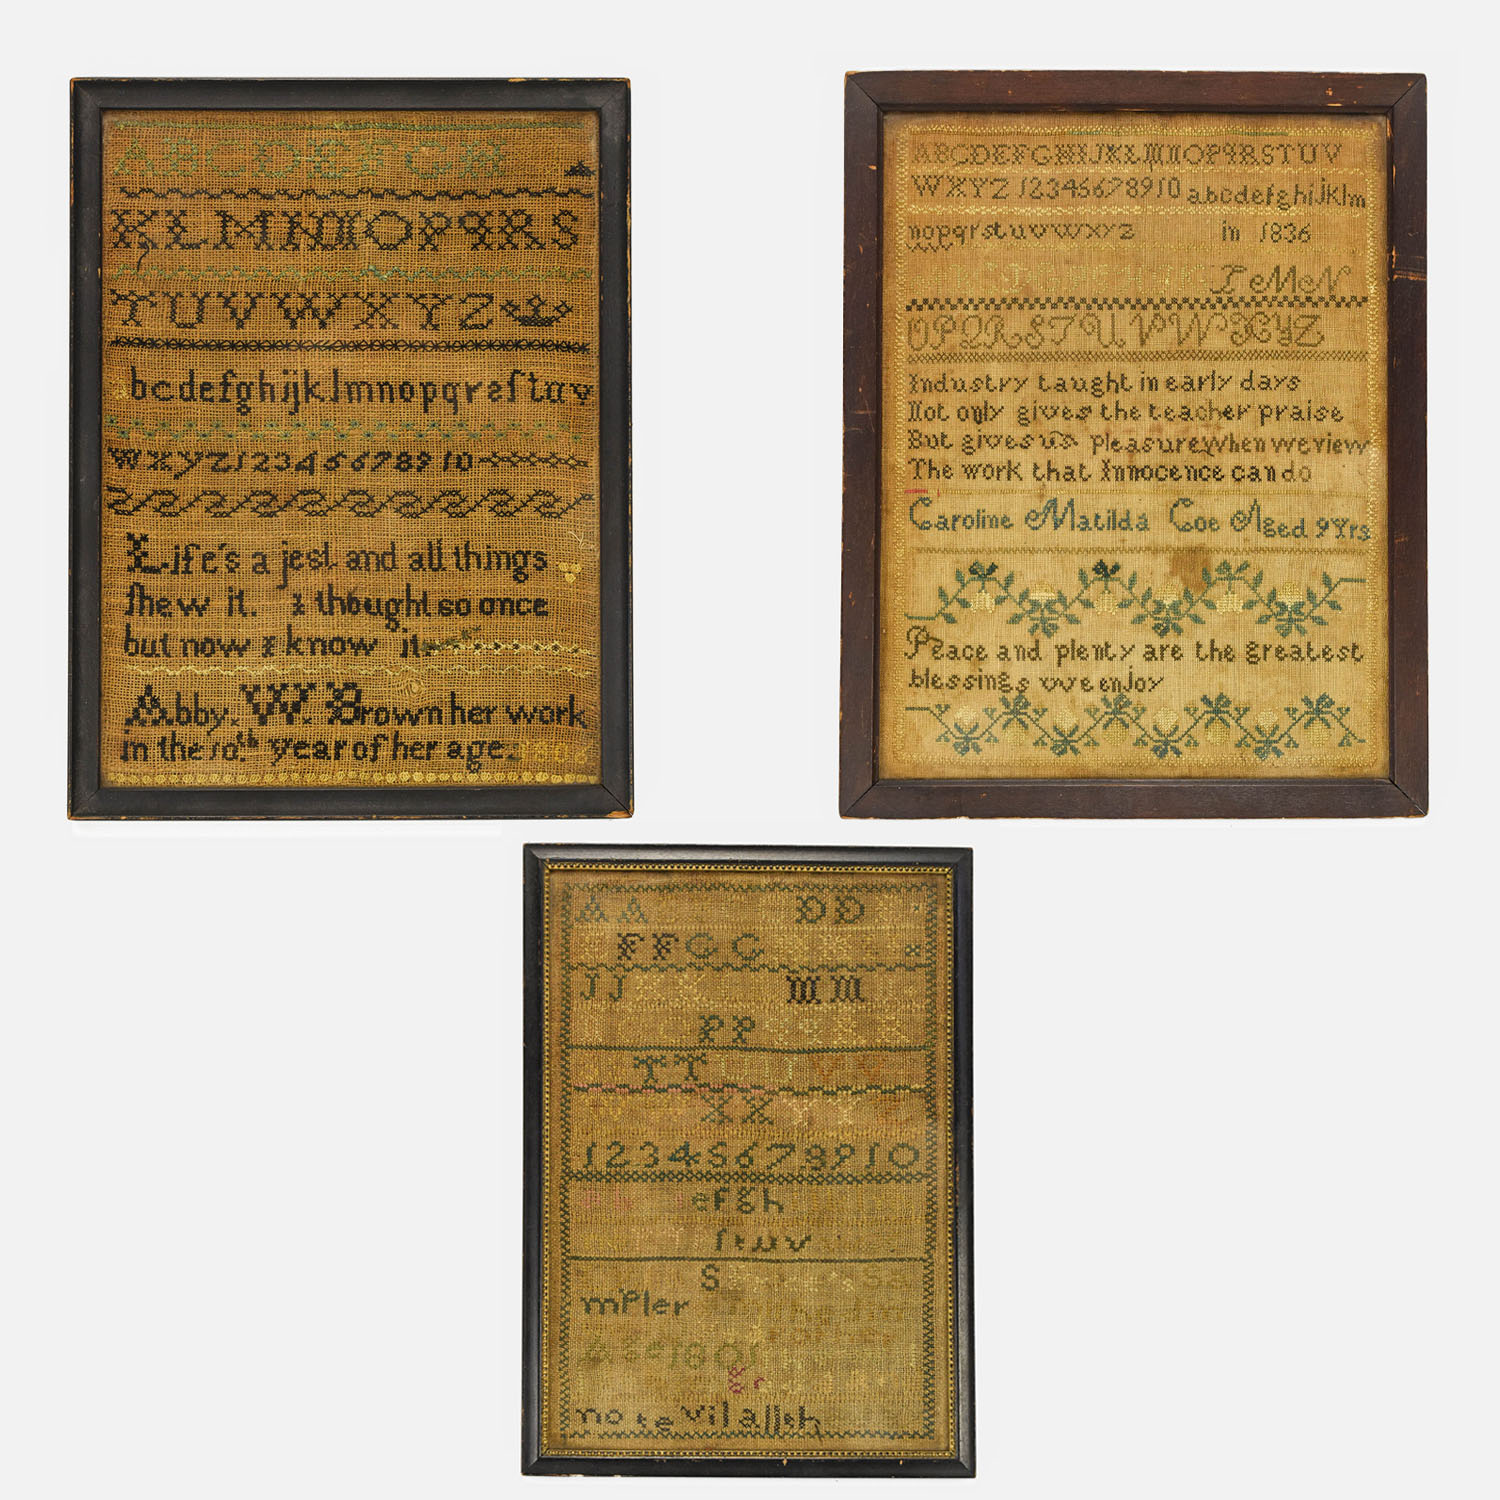 ABCDEFGH
KLMNOPQRS
TUVWXYZ
abcdefghijklmnopqrsſtuv
wxyz12345678910
Life's a jest and all things
ſhew it. I thought so once
but now I know it
Abby. W. Brown her work
in the 10th year of her age 1806
ABCDEFGHIJKLMNOPQRSTUV
WXYZ 12345678910 abcdefghijklm
nopqrstuvwxyz in 1836
OPQRSTUVWXYZ
Industry taught in early days
Not only gives the teacher praise
But gives us pleasure when we view
The work that Innocence can do
Caroline Matilda Coe Aged 9 Yrs
Peace and plenty are the greatest
blessings we enjoy
AA DD
FFGG
JJ MM
PP
TT VV
XXYY
12345678910
efgh
ſtuv
S
mpler
1801
no evil